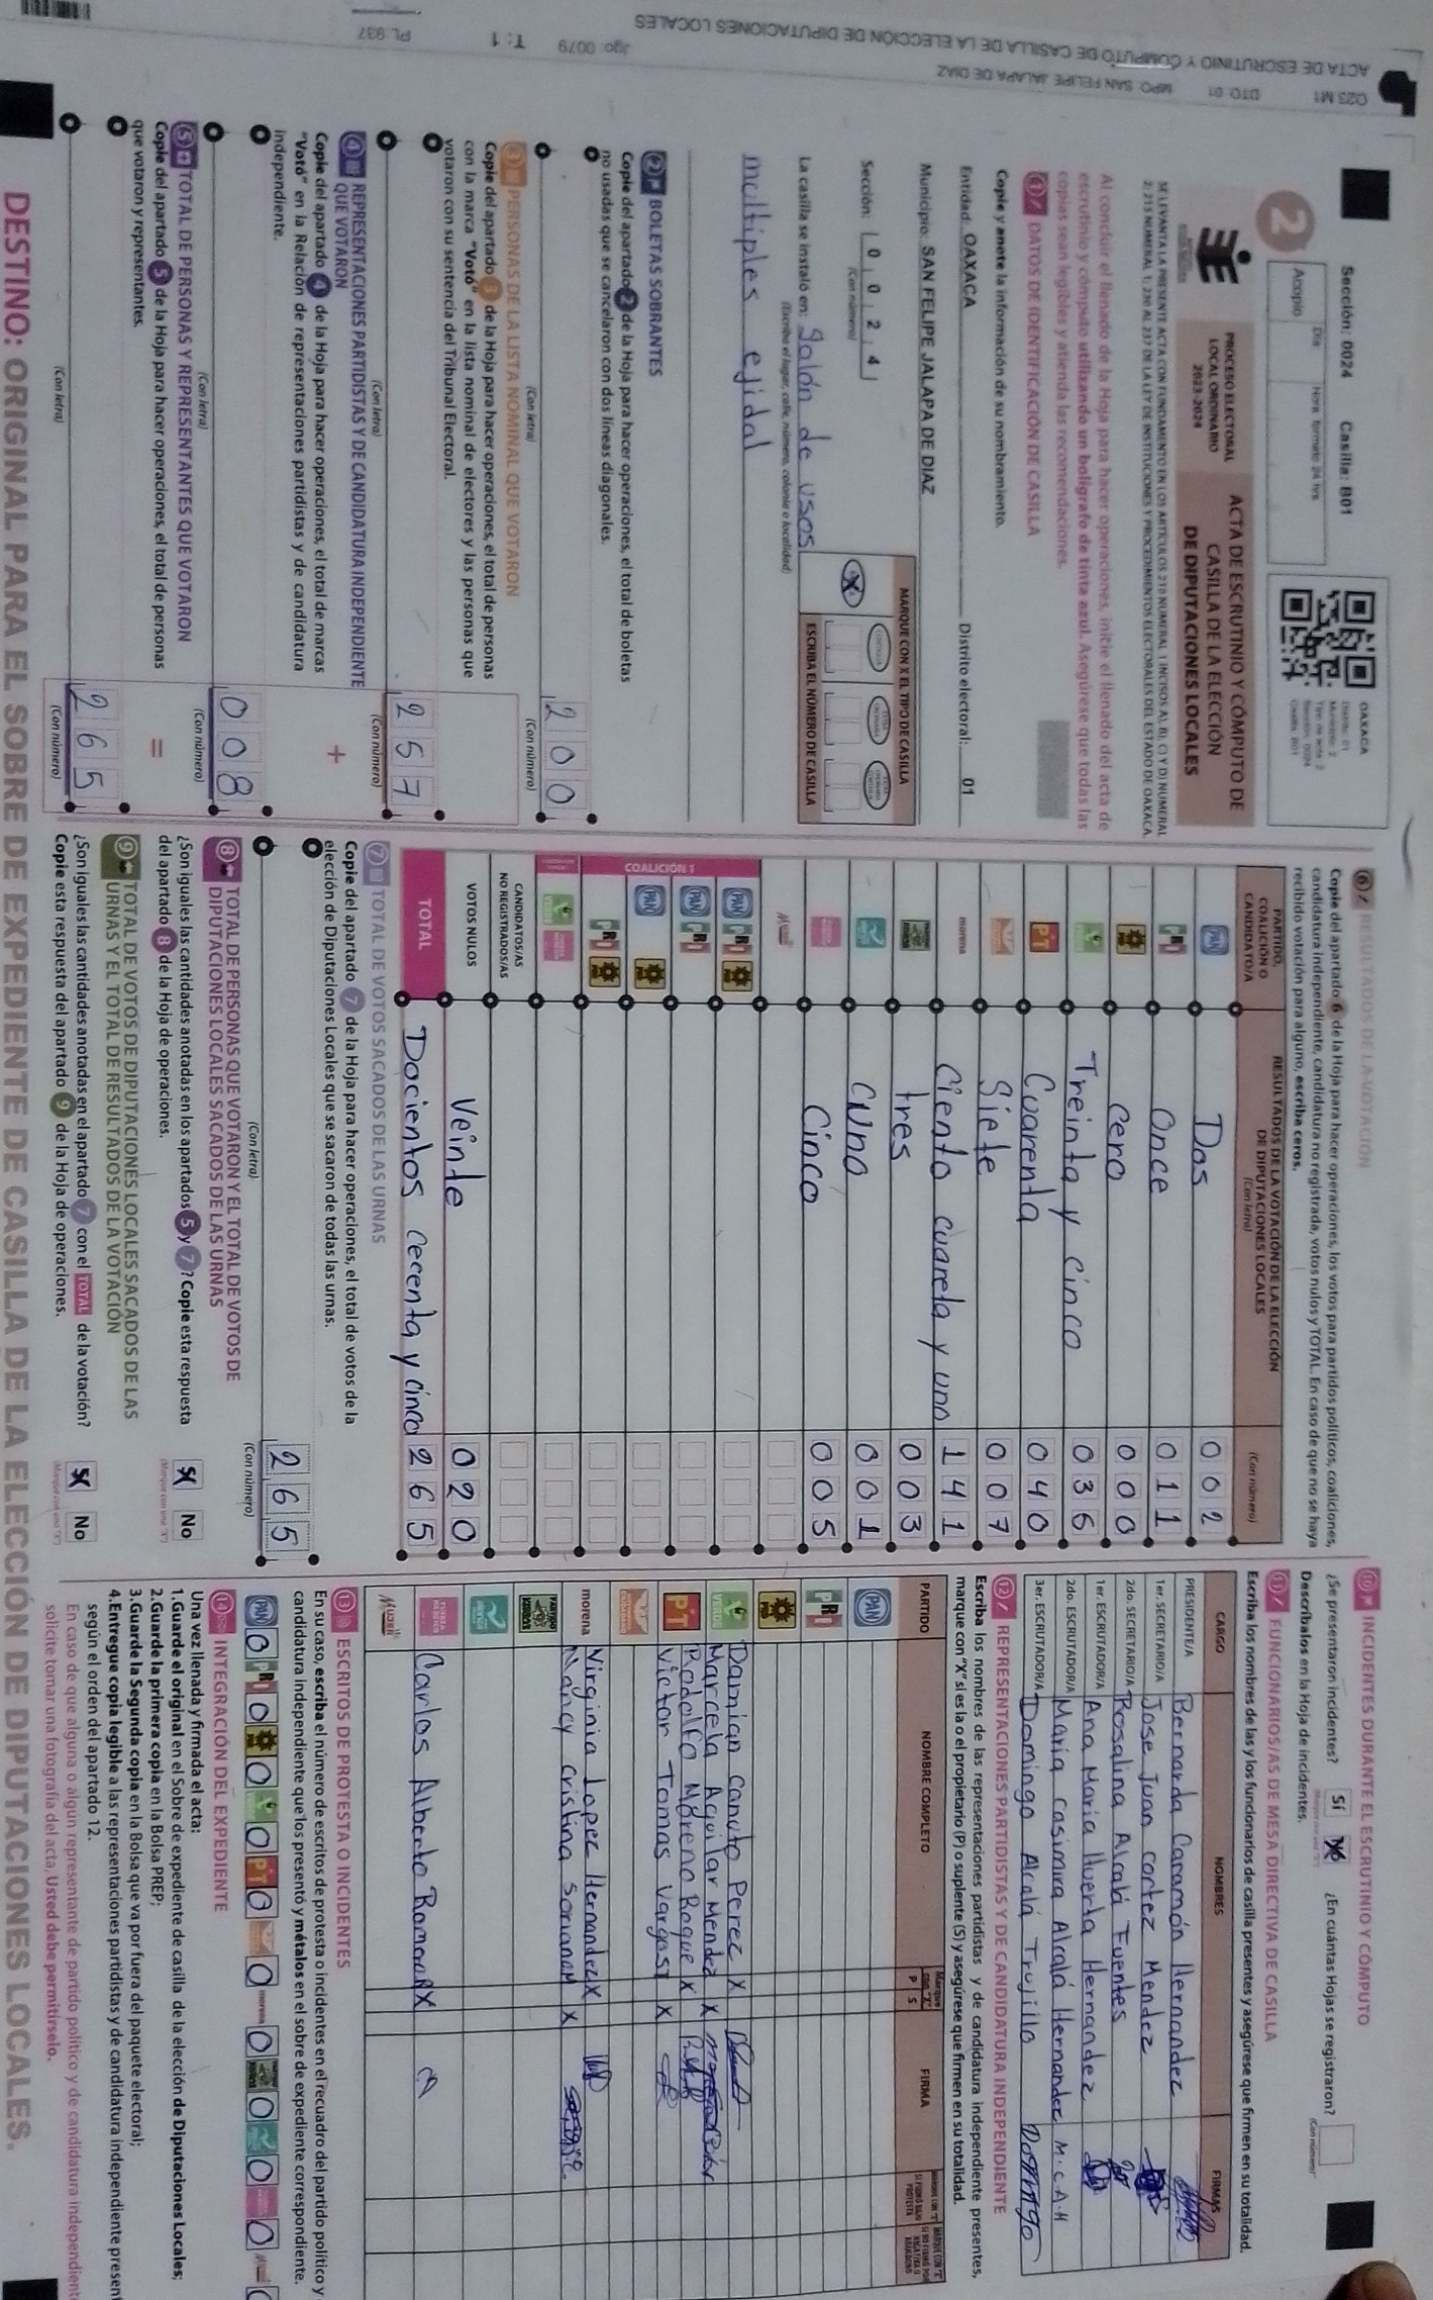 Sección: 0024 Casilla: B01
OAXACA
2
Acopio
Día
Hora formato 24 hrs
PROCESO ELECTORAL
LOCAL ORDINARIO
2023-2024
ACTA DE ESCRUTINIO Y CÓMPUTO DE
CASILLA DE LA ELECCIÓN
DE DIPUTACIONES LOCALES
Al concluir el llenado de la Hoja para hacer operaciones, inicie el llenado del acta de
escrutinio y cómputo utilizando un bolígrafo de tinta azul. Asegúrese que todas las
copias sean legibles y atienda las recomendaciones.
1 DATOS DE IDENTIFICACIÓN DE CASILLA
Copie y anote la información de su nombramiento.
Entidad: OAXACA Distrito electoral: 01
Municipio: SAN FELIPE JALAPA DE DIAZ
Sección: 0 0 2 4
(Con número)
MARQUE CON X EL TIPO DE CASILLA
X
ESCRIBA EL NÚMERO DE CASILLA
La casilla se instaló en: Salón de usos
(Escriba el lugar, calle, número, colonia o localidad)
multiples ejidal
2 BOLETAS SOBRANTES
Copie del apartado 2 de la Hoja para hacer operaciones, el total de boletas
no usadas que se cancelaron con dos líneas diagonales.
200
(Con letra) (Con número)
3 PERSONAS DE LA LISTA NOMINAL QUE VOTARON
Copie del apartado 3 de la Hoja para hacer operaciones, el total de personas
con la marca "Votó" en la lista nominal de electores y las personas que
votaron con su sentencia del Tribunal Electoral.
257
(Con letra) (Con número)
4 REPRESENTACIONES PARTIDISTAS Y DE CANDIDATURA INDEPENDIENTE
QUE VOTARON
Copie del apartado 4 de la Hoja para hacer operaciones, el total de marcas
"Votó" en la Relación de representaciones partidistas y de candidatura
independiente.
+
008
(Con letra) (Con número)
5 TOTAL DE PERSONAS Y REPRESENTANTES QUE VOTARON
Copie del apartado 5 de la Hoja para hacer operaciones, el total de personas
que votaron y representantes.
=
265
(Con letra) (Con número)
6 RESULTADOS DE LA VOTACIÓN
Copie del apartado 6 de la Hoja para hacer operaciones, los votos para partidos políticos, coaliciones,
candidatura independiente, candidatura no registrada, votos nulos y TOTAL. En caso de que no se haya
recibido votación para alguno, escriba ceros.
PARTIDO,
COALICIÓN O
CANDIDATO/A
RESULTADOS DE LA VOTACIÓN DE LA ELECCIÓN
DE DIPUTACIONES LOCALES
(Con letra)
(Con número)
PAN Dos 002
PRI Once 011
PRD cero 000
VERDE Treinta y cinco 036
PT Cuarenta 040
Siete 007
morena Ciento cuarela y uno 141
tres 003
Uno 001
Cinco 005
MUJER
COALICIÓN 1
PAN PRI PRD
PAN PRI
PAN PRD
PRI PRD
CANDIDATOS/AS
NO REGISTRADOS/AS
VOTOS NULOS Veinte 020
TOTAL Docientos cecenta y cinco 265
7 TOTAL DE VOTOS SACADOS DE LAS URNAS
Copie del apartado 7 de la Hoja para hacer operaciones, el total de votos de la
elección de Diputaciones Locales que se sacaron de todas las urnas.
265
(Con letra) (Con número)
8 TOTAL DE PERSONAS QUE VOTARON Y EL TOTAL DE VOTOS DE
DIPUTACIONES LOCALES SACADOS DE LAS URNAS
¿Son iguales las cantidades anotadas en los apartados 5 y 7? Copie esta respuesta
del apartado 8 de la Hoja de operaciones.
Sí No
9 TOTAL DE VOTOS DE DIPUTACIONES LOCALES SACADOS DE LAS
URNAS Y EL TOTAL DE RESULTADOS DE LA VOTACIÓN
¿Son iguales las cantidades anotadas en el apartado 7 con el TOTAL de la votación?
Copie esta respuesta del apartado 9 de la Hoja de operaciones.
Sí No
10 INCIDENTES DURANTE EL ESCRUTINIO Y CÓMPUTO
¿Se presentaron incidentes? Sí No ¿En cuántas Hojas se registraron?
Descríbalos en la Hoja de incidentes.
11 FUNCIONARIOS/AS DE MESA DIRECTIVA DE CASILLA
Escriba los nombres de las y los funcionarios de casilla presentes y asegúrese que firmen en su totalidad.
CARGO NOMBRES FIRMAS
PRESIDENTE/A Bernarda Caramón Hernandez
1er. SECRETARIO/A Jose Juan Cortez Mendez
2do. SECRETARIO/A Rosalina Alcalá Fuentes
1er. ESCRUTADOR/A Ana Maria Huerta Hernandez
2do. ESCRUTADOR/A Maria Casimira Alcalá Hernandez M.C.A.H
3er. ESCRUTADOR/A Domingo Alcalá Trujillo Domingo
12 REPRESENTACIONES PARTIDISTAS Y DE CANDIDATURA INDEPENDIENTE
Escriba los nombres de las representaciones partidistas y de candidatura independiente presentes,
marque con "X" si es la o el propietario (P) o suplente (S) y asegúrese que firmen en su totalidad.
PARTIDO NOMBRE COMPLETO P S FIRMA
PAN
PRI
PRD
VERDE Damian Canuto Perez X
Marcela Aguilar Mendez X
PT Rodolfo Moreno Roque X
Victor Tomas Vargas X
morena Virginia Lopez Hernandez X
Nancy Cristina Soriano X
Carlos Alberto X
MUJER
13 ESCRITOS DE PROTESTA O INCIDENTES
En su caso, escriba el número de escritos de protesta o incidentes en el recuadro del partido político y
candidatura independiente que los presentó y métalos en el sobre de expediente correspondiente.
PAN 0 PRI 0 PRD 0 VERDE 0 PT 0 0 morena 0 0 0 0
14 INTEGRACIÓN DEL EXPEDIENTE
Una vez llenada y firmada el acta:
1. Guarde el original en el Sobre de expediente de casilla de la elección de Diputaciones Locales;
2. Guarde la primera copia en la Bolsa PREP;
3. Guarde la Segunda copia en la Bolsa que va por fuera del paquete electoral;
4. Entregue copia legible a las representaciones partidistas y de candidatura independiente presen
según el orden del apartado 12.
En caso de que alguna o algún representante de partido político y de candidatura independient
solicite tomar una fotografía del acta, Usted debe permitírselo.
DESTINO: ORIGINAL PARA EL SOBRE DE EXPEDIENTE DE CASILLA DE LA ELECCIÓN DE DIPUTACIONES LOCALES.
ACTA DE ESCRUTINIO Y CÓMPUTO DE CASILLA DE LA ELECCIÓN DE DIPUTACIONES LOCALES
023 M1 DTO: 01 MPO: SAN FELIPE JALAPA DE DIAZ
Jgo: 0079 T: 1 PL: 937